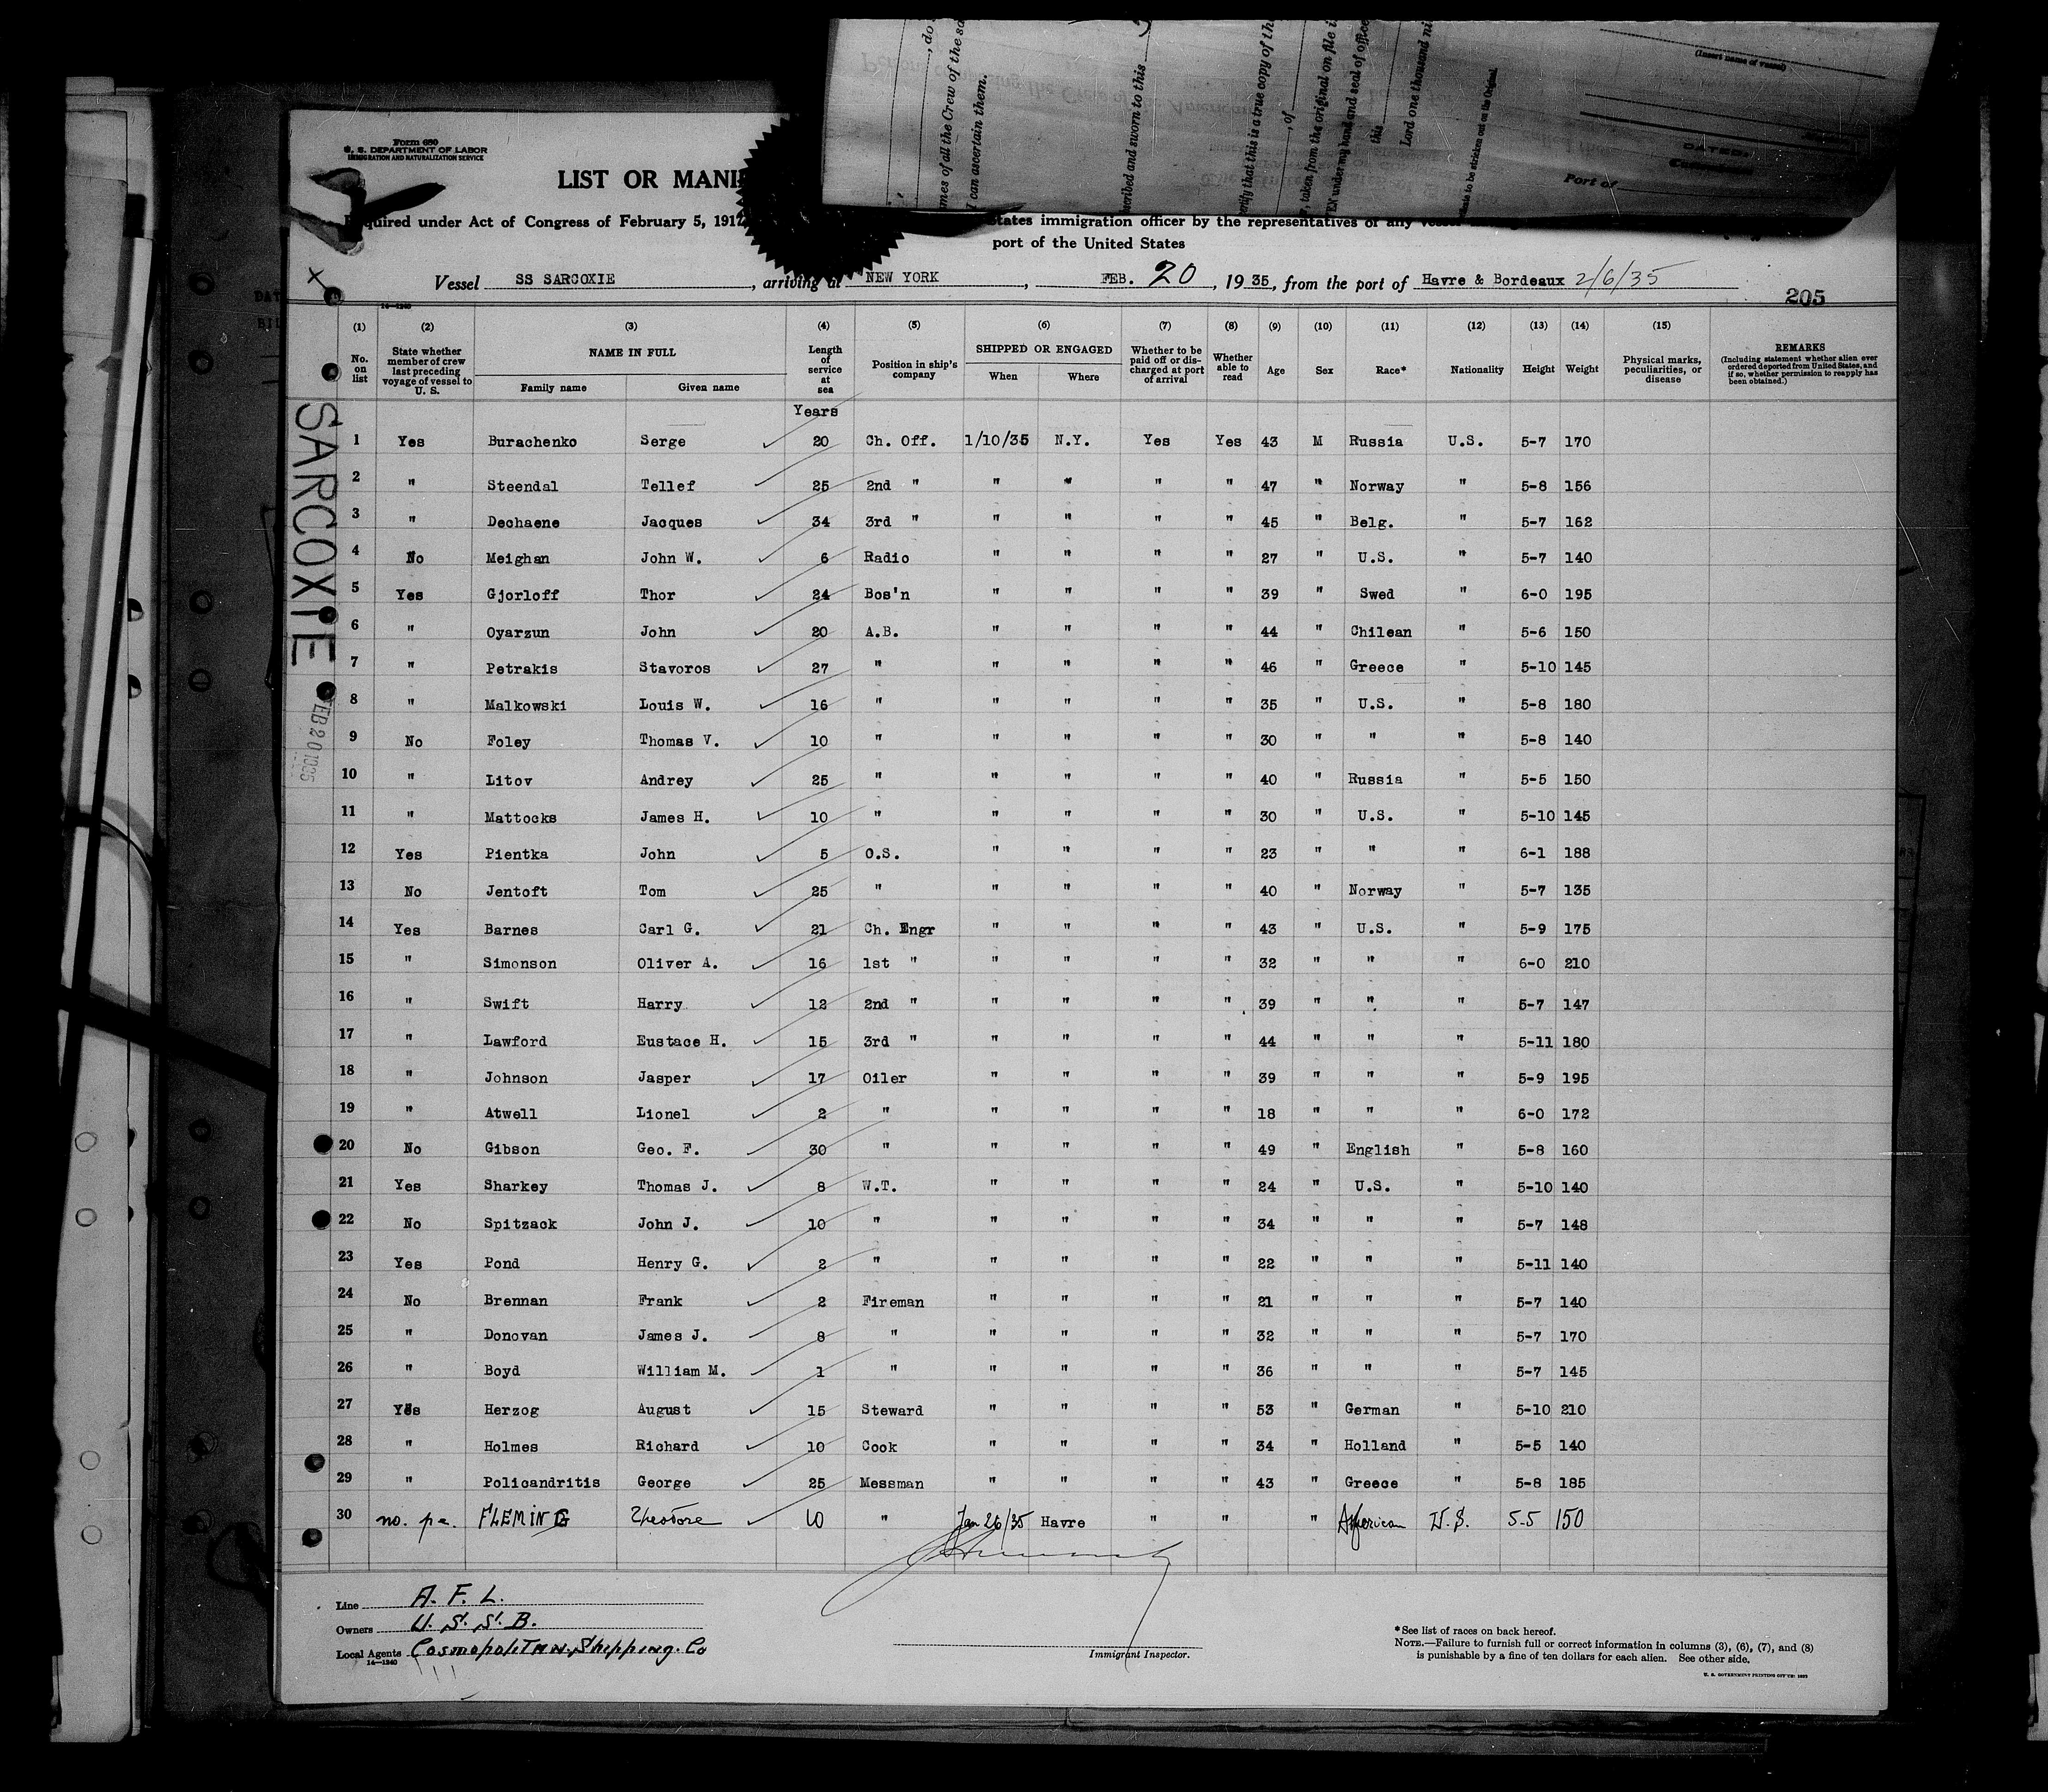 Form 680
U. S. DEPARTMENT OF LABOR
IMMIGRATION AND NATURALIZATION SERVICE
LIST OR MANI
quired under Act of Congress of February 5, 191
States immigration officer by the representatives of any vessel
port of the United States
Vessel SS SARCOXIE, arriving at NEW YORK, FEB. 20, 1935, from the port of Havre & Bordeaux 2/6/35
205
14-1240
(1) (2) (3) (4) (5) (6) (7) (8) (9) (10) (11) (12) (13) (14) (15)
No. on list | State whether member of crew last preceding voyage of vessel to U. S. | NAME IN FULL | Family name | Given name | Length of service at sea | Position in ship's company | SHIPPED OR ENGAGED | When | Where | Whether to be paid off or discharged at port of arrival | Whether able to read | Age | Sex | Race* | Nationality | Height | Weight | Physical marks, peculiarities, or disease | REMARKS (Including statement whether alien ever ordered deported from United States, and if so, whether permission to reapply has been obtained.)
Years
1 Yes Burachenko Serge 20 Ch. Off. 1/10/35 N.Y. Yes Yes 43 M Russia U.S. 5-7 170
2 " Steendal Tellef 25 2nd " " " " " 47 " Norway " 5-8 156
3 " Dechaene Jacques 34 3rd " " " " " 45 " Belg. " 5-7 162
4 No Meighan John W. 6 Radio " " " " 27 " U.S. " 5-7 140
5 Yes Gjorloff Thor 24 Bos'n " " " " 39 " Swed " 6-0 195
6 " Oyarzun John 20 A.B. " " " " 44 " Chilean " 5-6 150
7 " Petrakis Stavoros 27 " " " " " 46 " Greece " 5-10 145
8 " Malkowski Louis W. 16 " " " " " 35 " U.S. " 5-8 180
9 No Foley Thomas V. 10 " " " " " 30 " " " 5-8 140
10 " Litov Andrey 25 " " " " " 40 " Russia " 5-5 150
11 " Mattocks James H. 10 " " " " " 30 " U.S. " 5-10 145
12 Yes Pientka John 5 O.S. " " " " 23 " " " 6-1 188
13 No Jentoft Tom 25 " " " " " 40 " Norway " 5-7 135
14 Yes Barnes Carl G. 21 Ch. Engr " " " " 43 " U.S. " 5-9 175
15 " Simonson Oliver A. 16 1st " " " " " 32 " " " 6-0 210
16 " Swift Harry 12 2nd " " " " " 39 " " " 5-7 147
17 " Lawford Eustace H. 15 3rd " " " " " 44 " " " 5-11 180
18 " Johnson Jasper 17 Oiler " " " " 39 " " " 5-9 195
19 " Atwell Lionel 2 " " " " " 18 " " " 6-0 172
20 No Gibson Geo. F. 30 " " " " " 49 " English " 5-8 160
21 Yes Sharkey Thomas J. 8 W.T. " " " " 24 " U.S. " 5-10 140
22 No Spitzack John J. 10 " " " " " 34 " " " 5-7 148
23 Yes Pond Henry G. 2 " " " " " 22 " " " 5-11 140
24 No Brennan Frank 2 Fireman " " " " 21 " " " 5-7 140
25 " Donovan James J. 8 " " " " " 32 " " " 5-7 170
26 " Boyd William M. 1 " " " " " 36 " " " 5-7 145
27 Yes Herzog August 15 Steward " " " " 53 " German " 5-10 210
28 " Holmes Richard 10 Cook " " " " 34 " Holland " 5-5 140
29 " Policandritis George 25 Messman " " " " 43 " Greece " 5-8 185
30 no. FLEMING Theodore 10 " Jan 26/35 Havre " " " American U.S. 5-5 150
Line A. F. L.
Owners U. S. S. B.
Local Agents Cosmopolitan Shipping Co
14-1240
Immigrant Inspector.
*See list of races on back hereof.
NOTE.—Failure to furnish full or correct information in columns (3), (6), (7), and (8)
is punishable by a fine of ten dollars for each alien. See other side.
U. S. GOVERNMENT PRINTING OFFICE: 1933
SARCOXIE
FEB 20 1935
, do
mes of all the Crew of the sa
I can ascertain them.
scribed and sworn to this
, of
rtify that this is a true copy of th
, taken from the original on file i
EN under my hand and seal of office
this
Lord one thousand ni
to be stricken out on the Original.
(Insert name of vessel)
DATED:
Port of